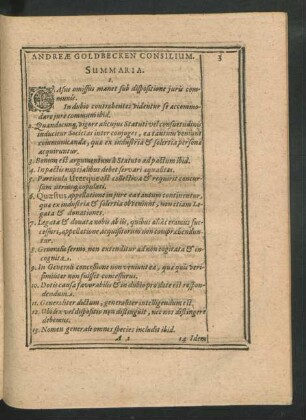 ANDREÆ GOLDBECKEN CONSILIUM. 3
SUMMARIA.
1.
CAsus omissus manet sub dispositione juris communis.
In dubio contrahentes videntur se accommodare juri communi ibid.
2. Quandocunq; vigore alicujus Statuti vel consuetudinis
inducitur Societas inter conjuges, ea tantum veniunt
communicanda, quæ ex industria & solertia persona
acquiruntur.
3. Bonum est argumentum à Statuto ad pactum ibid.
4. In pactis nuptialibus debet servari æqualitas.
5. Particula Utereque est collectiva & requirit concursum utriusq; copulati.
6. Quæstus appellatione in jure ea tantum continentur,
quæ ex industria & solertia obveniunt, non etiam Legata & donationes.
7. Legata & donata nobis ab iis, quibus aliàs eramus successuri, appellatione acquisitorum non comprehenduntur.
8. Generalis sermo non extenditur ad non cogitata & incognita.
9. In Generali concessione non veniunt ea, quæ quis verisimiliter non fuisset concessurus.
10. Dotis causa favorabilis & in dubio pro dote est respondendum.
11. Generaliter dictum, generaliter intelligendum est.
12. Ubi lex vel dispositio non distinguit, nec nos distinguere
debemus.
13. Nomen generale omnes species includit ibid.
A 2 14 Idem